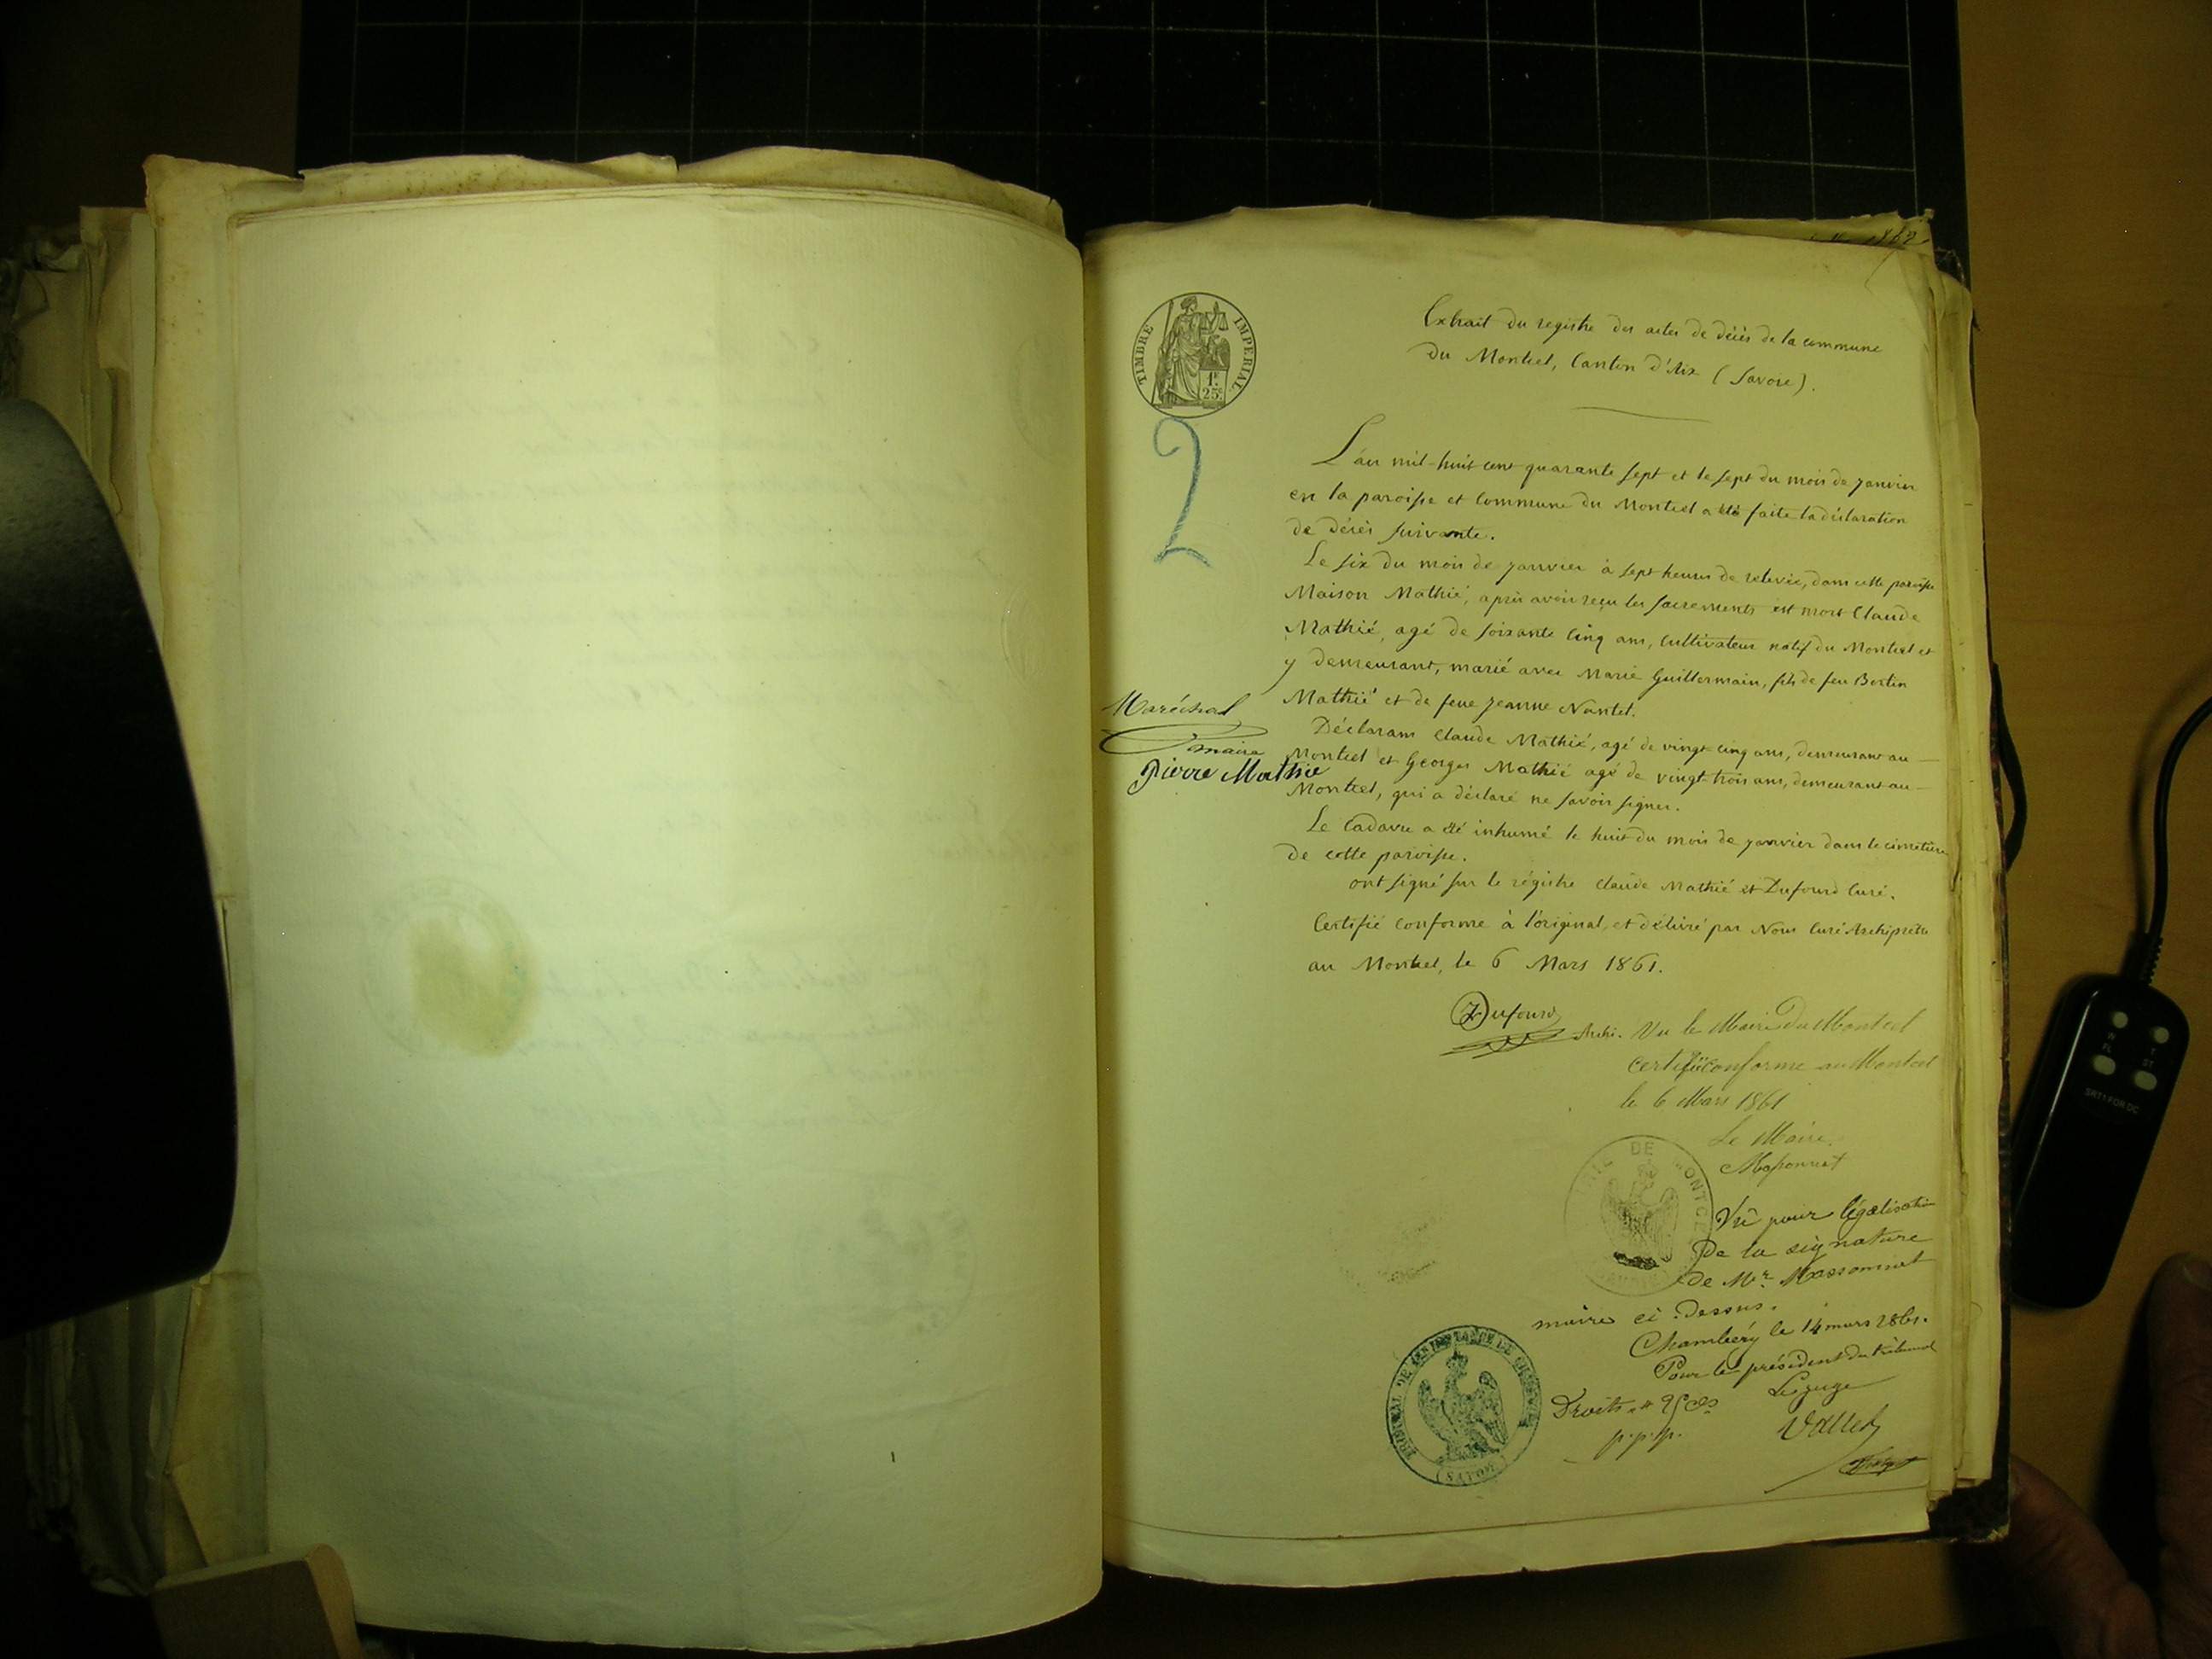 1862
TIMBRE IMPERIAL
1F
25c
2
Extrait du registre des actes de décès de la commune
du Montcel, Canton d'Aix (Savoie).
L'an mil-huit cent quarante sept et le sept du mois de janvier
en la paroisse et Commune du Montcel a été faite la déclaration
de décès suivante.
Le six du mois de janvier à sept heures de relevée, dans cette paroisse
Maison Mathié, après avoir reçu les sacrements est mort Claude
Mathié, agé de soixante cinq ans, cultivateur natif du Montcel et
y demeurant, marié avec Marie Guillermain, fils de feu Bertin
Mathié et de feue Jeanne Nantet.
Déclarans Claude Mathié, agé de vingt cinq ans, demeurant au
Montcel et Georges Mathié agé de vingt-trois ans, demeurant au
Montcel, qui a déclaré ne savoir signer.
Le Cadavre a été inhumé le huit du mois de janvier dans le cimetière
de cette paroisse.
ont signé sur le régistre Claude Mathié et Dufourd Curé.
Certifié conforme à l'original, et délivré par Nous Curé Archiprêtre
au Montcel, le 6 Mars 1861.
Maréchal
maire
Pierre Mathie
Dufourd
Archi.
Vu le Maire du Montcel
certifié conforme au Montcel
le 6 Mars 1861
Le Maire
Massonnat
DE MONTCEL
Vu pour légalisation
de la signature
de Mr. Massonnat
maire ci-dessus.
Chambéry le 14 mars 1861.
Pour le président du tribunal
Le juge
Vallet
Droits 25 cs
p.p.p.
TRIBUNAL DE 1ERE INSTANCE DE CHAMBERY
(SAVOIE)
W
T
FL
ST
SRT1 FOR DC